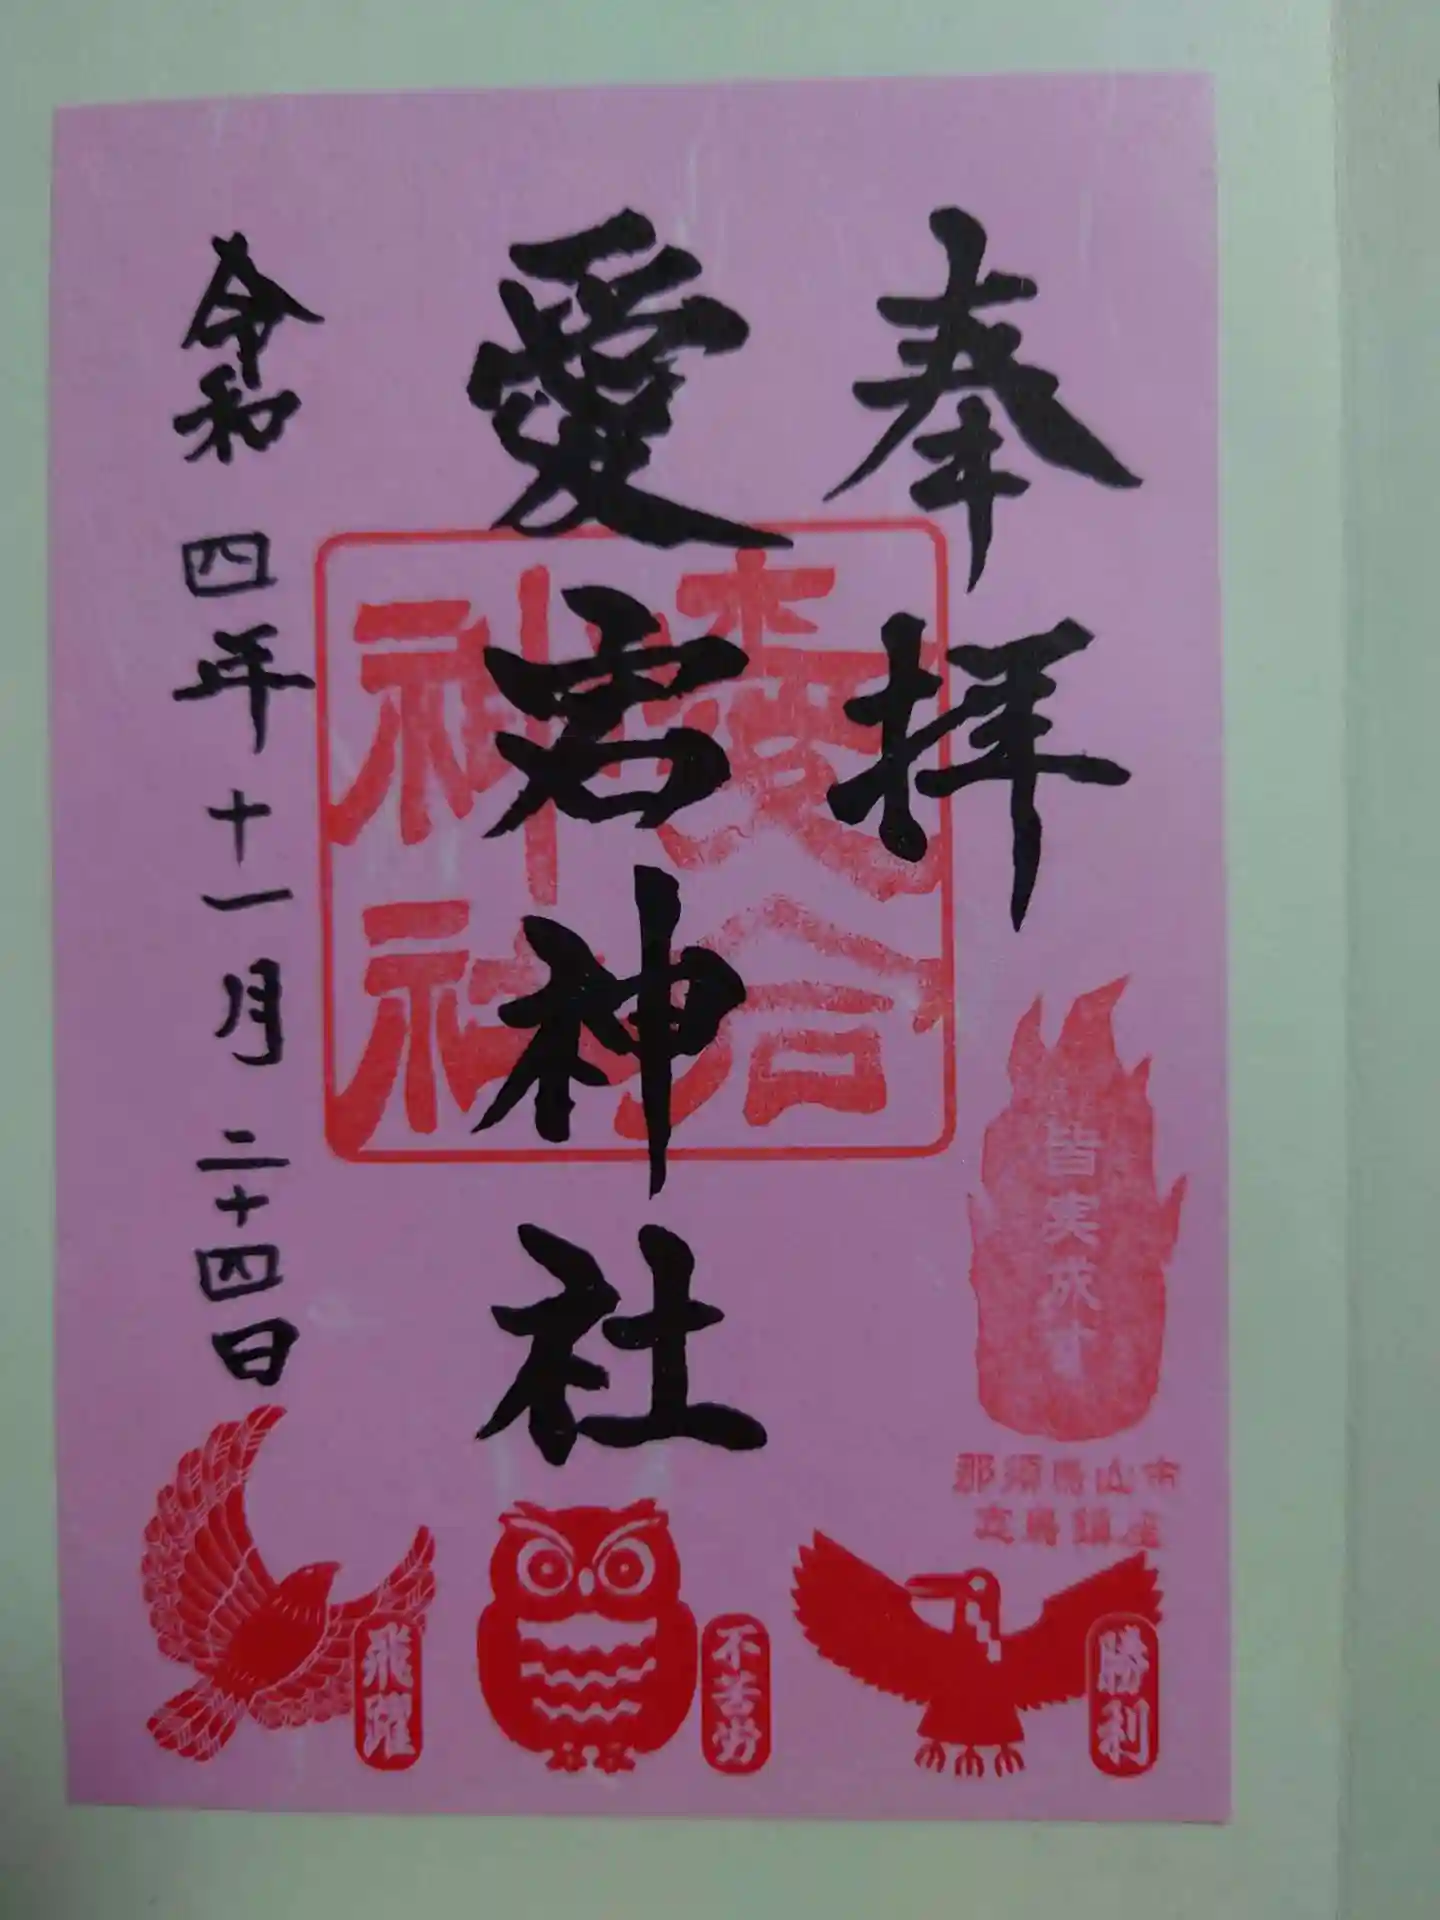 奉拝
愛宕神社
令和四年十一月二十四日
神社
皆実成す
那須烏山市
志鳥鎮座
勝利
不苦労
飛躍